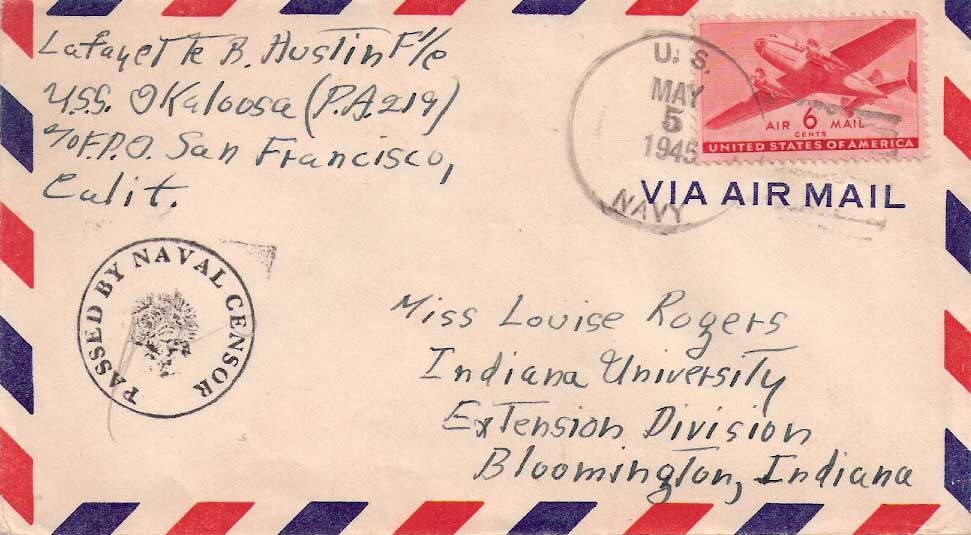 Lafayette B. Austin F1/c
U.S.S. Okaloosa (P.A. 219)
c/o F.P.O. San Francisco,
Calif.
U. S.
MAY
5
1945
NAVY
AIR 6 MAIL
CENTS
UNITED STATES OF AMERICA
VIA AIR MAIL
PASSED BY NAVAL CENSOR
Miss Louise Rogers
Indiana University
Extension Division
Bloomington, Indiana